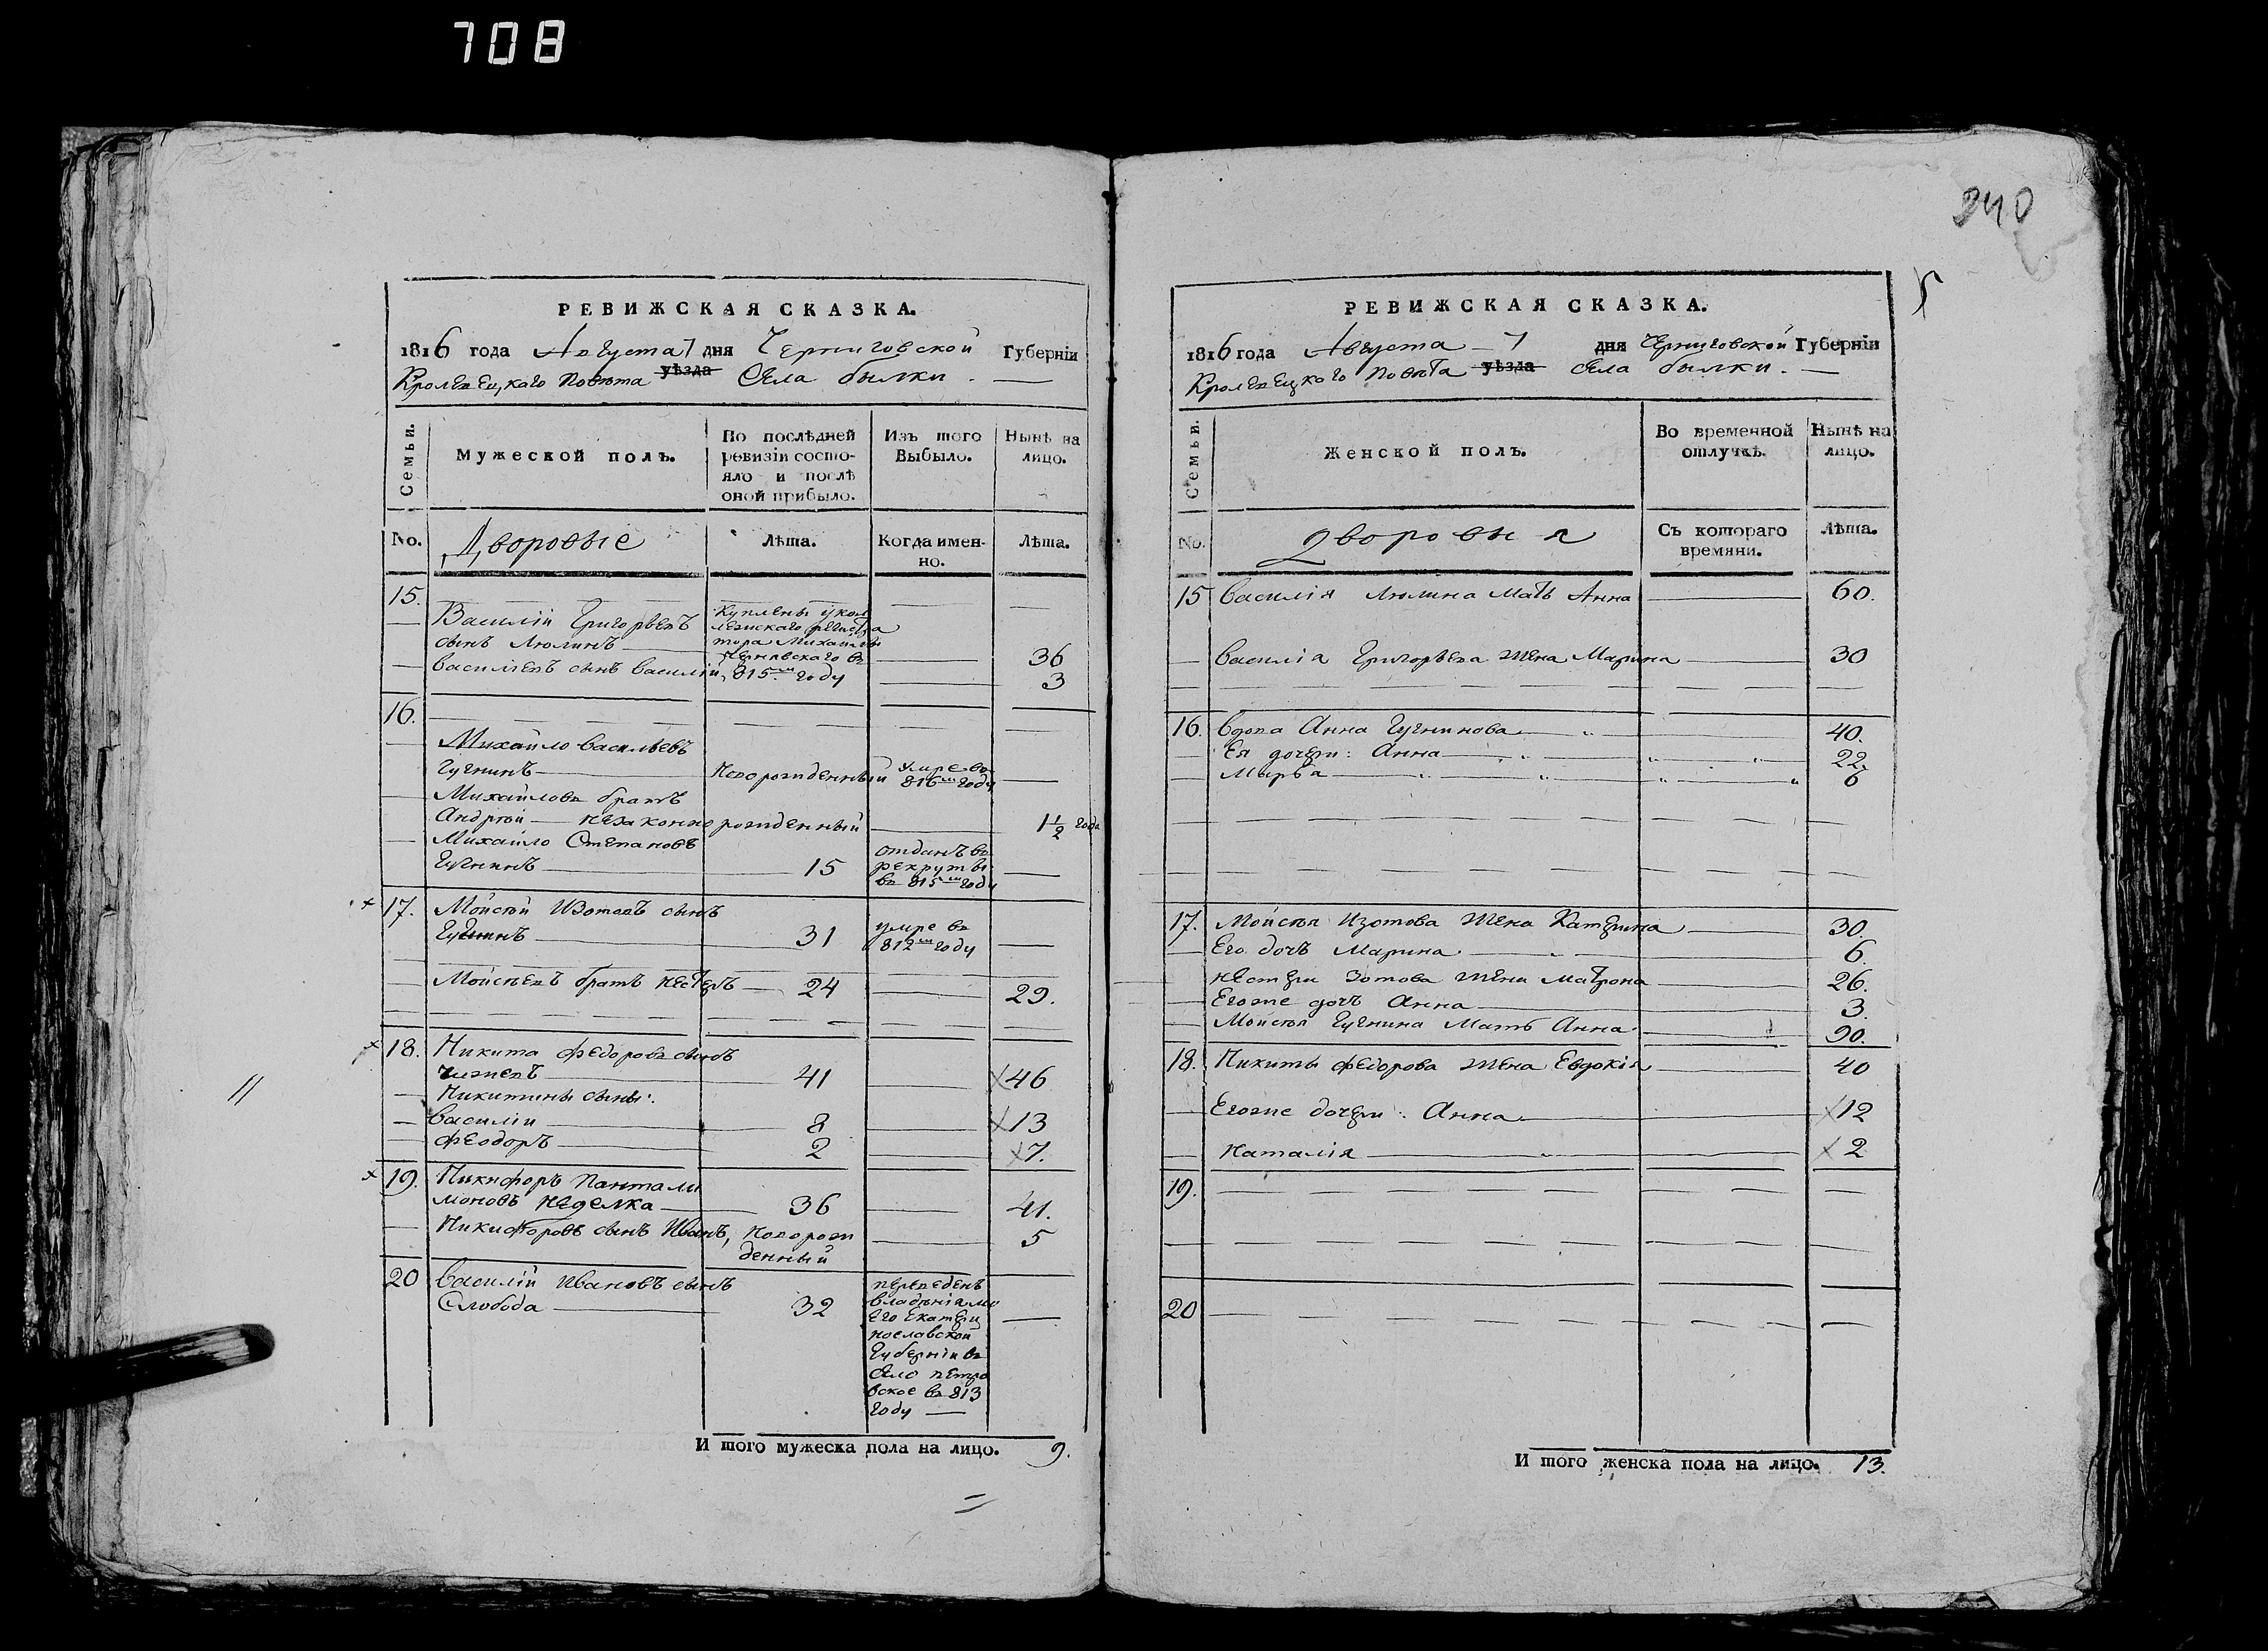 708
240
РЕВИЖСКАЯ СКАЗКА.
1816 года Августа 7 дня Черниговской Губерніи
Кролевецкаго повѣта уѣзда Села былки.
Семьи.
Мужеской полъ.
По послѣдней
ревизіи состо-
яло и послѣ
оной прибыло.
Изъ того
Выбыло.
Нынѣ на
лицо.
No.
Дворовые
Лѣта.
Когда имен-
но.
Лѣта.
15.
Василій Григорьевъ
сынъ Люлинъ
36
Васильевъ сынъ Василій,
3
Куплены у кол
лежскаго регистра
тора Михаилы
Чернявскаго въ
815м году
16.
Михайло Васильевъ
Гугнинъ Новорожденный
умре во
816м году
Михайловъ братъ
Андрей незаконно рожденный 1½ года
Михайло Степановъ
Гугнинъ 15
отданъ въ
рекруты
въ 815м году
17. Мойсей Изотовъ сынъ
Гугнинъ 31
умре въ
812м году
Мойсеевъ братъ Нестеръ 24 29.
18. Никита Федоровъ сынъ
Чижевъ 41 46
Никитины сыны:
Василіи 8 13
Феодоръ 2 7.
19. Никифоръ Пантели
моновъ Неделка 36 41.
Никифоровъ сынъ Иванъ, Новорож
денный 5
20 Василій Ивановъ сынъ
Слобода 32
переведенъ
владѣнія мо
его Екатери
нославской
Губерніи въ
село петро
вское въ 813
году
И того мужеска пола на лицо. 9.
РЕВИЖСКАЯ СКАЗКА.
1816 года Августа 7 дня Черниговской Губерніи
Кролевецкого повѣта уѣзда Села былки.
Семьи.
Женской полъ.
Во временной
отлучкѣ.
Нынѣ на
лицо.
No.
Дворовыя
Съ котораго
времяни.
Лѣта.
15 Василія Люлина Мать Анна 60.
Василія Григорьева жена Марина 30
16. вдова Анна Гугнинова 40.
Ея дочери: Анна 22.
Марѳа 6
17. Мойсея Изотова жена Катерина 30.
Его дочь Марина 6.
Нестера Зотова жена Матрона 26.
Егоже дочь Анна 3.
Мойсея Гугнина Мать Анна 90.
18. Никиты Федорова жена Евдокія 40
Егоже дочери: Анна 12
Наталія 2
19.
20
И того женска пола на лицо. 13.